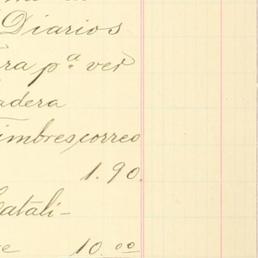 Diarios
ra pª ver
adera
Timbres correo
1.90.
Catali-
10.00